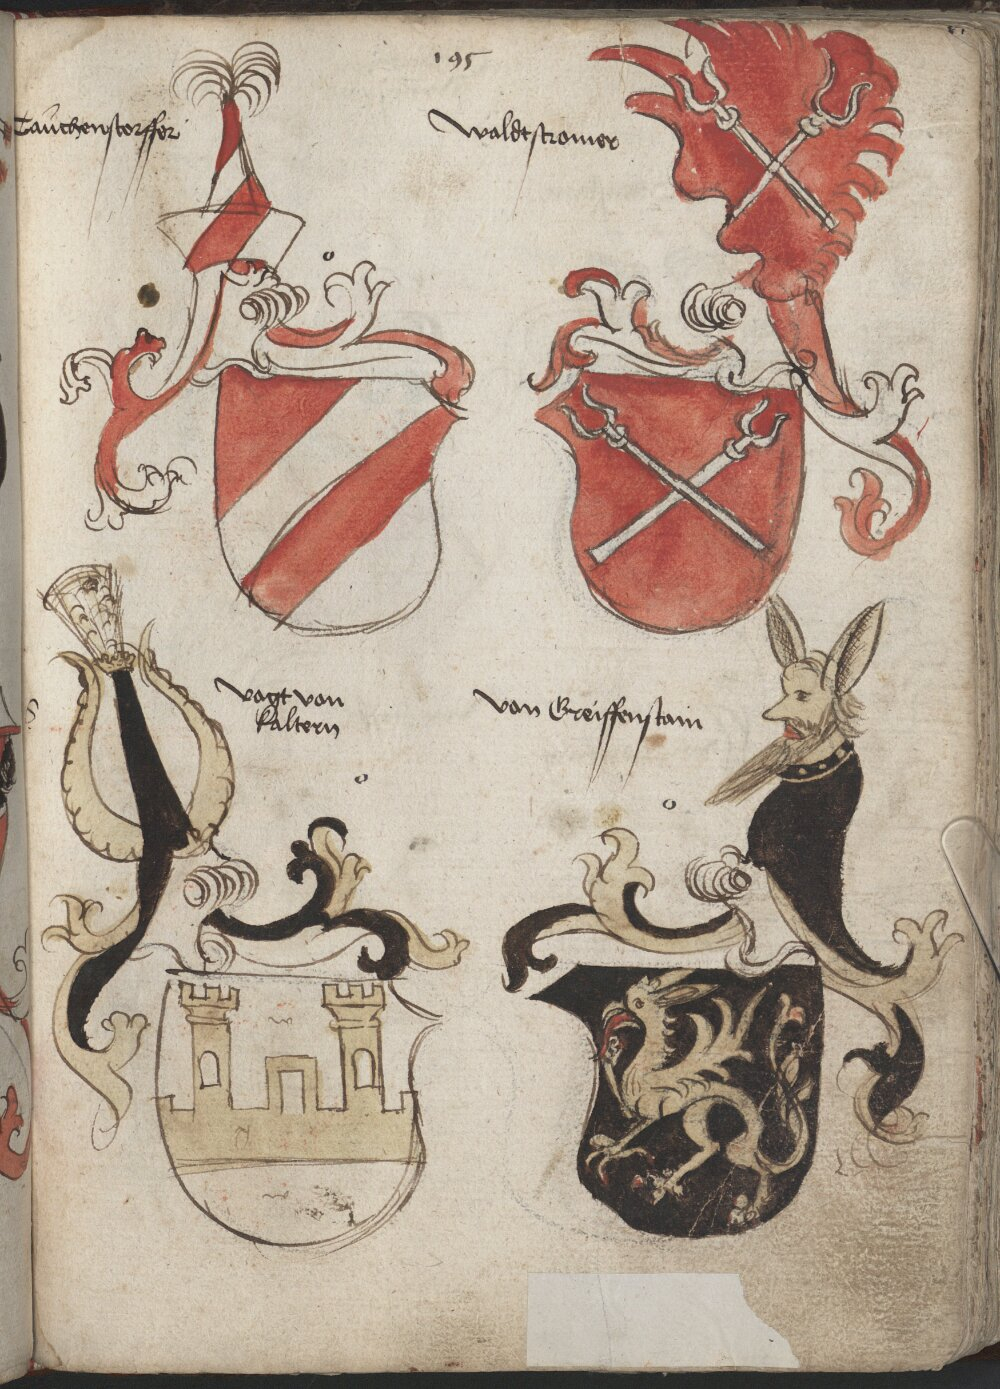 195
Tauchenstorffer
Waldtstromer
vogt von
kaltern
von Greiffenstain